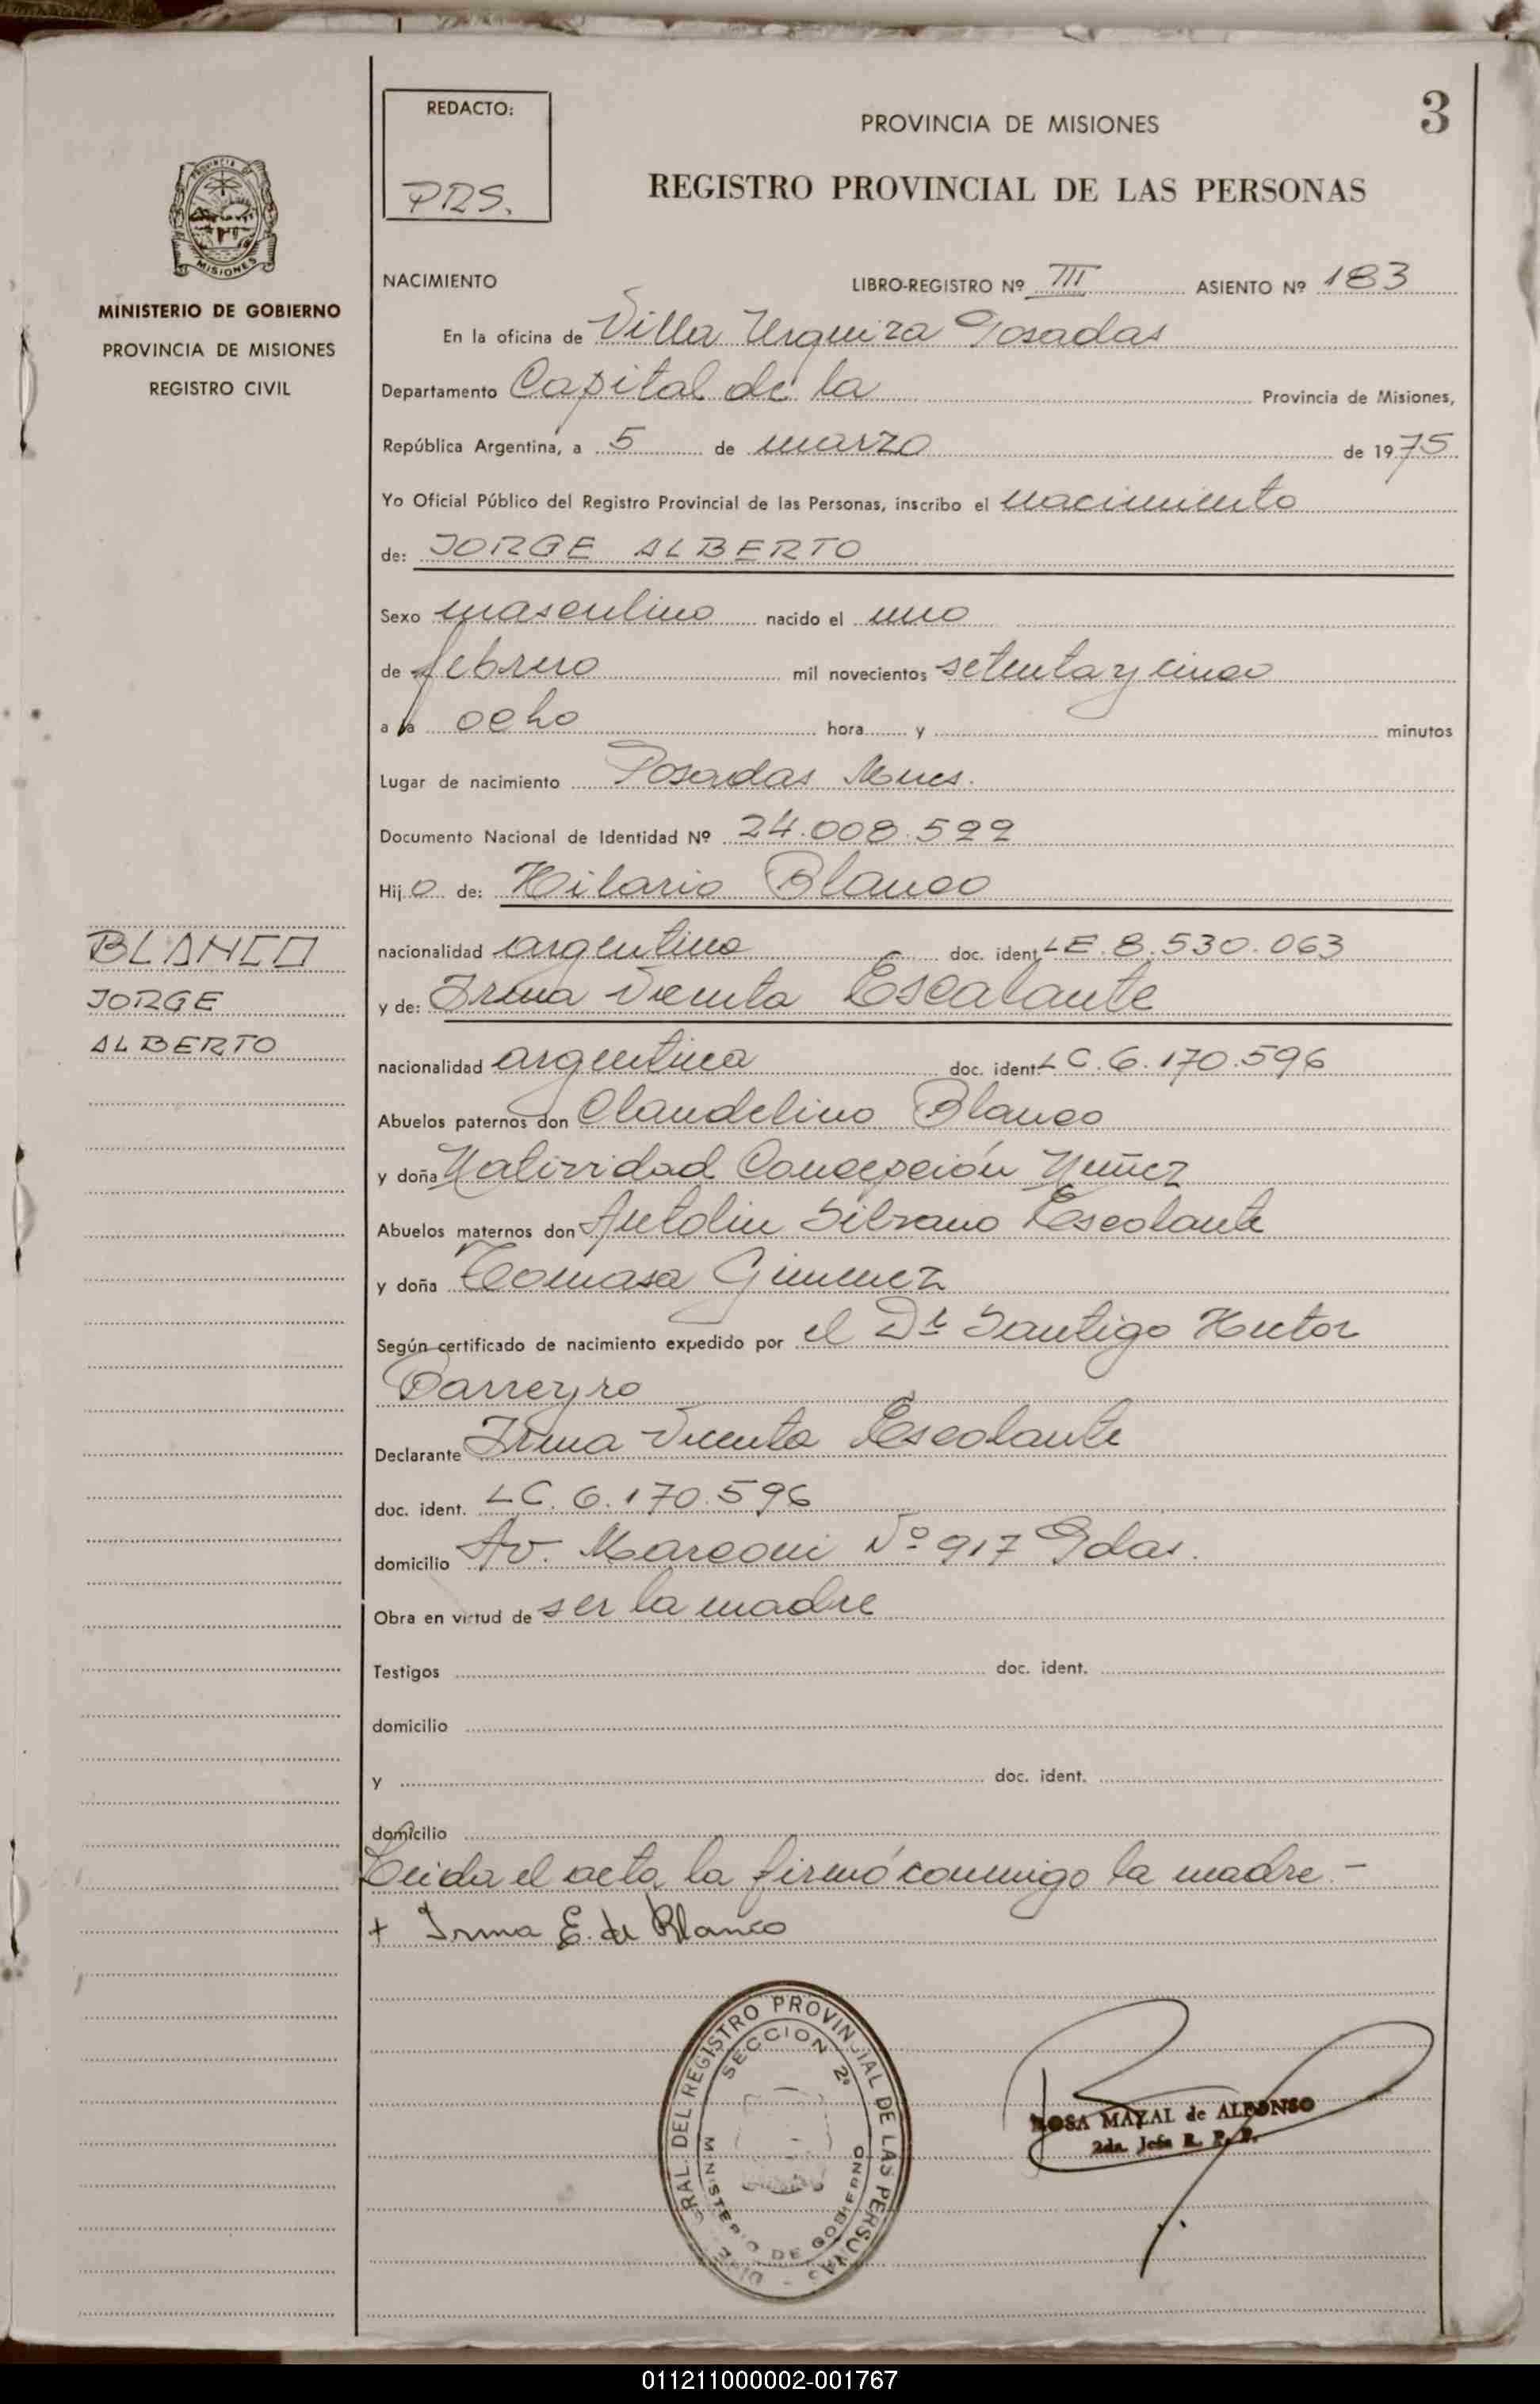 3
REDACTO:
PRS.
PROVINCIA DE MISIONES
REGISTRO PROVINCIAL DE LAS PERSONAS
PROVINCIA
MISIONES
MINISTERIO DE GOBIERNO
PROVINCIA DE MISIONES
REGISTRO CIVIL
NACIMIENTO LIBRO-REGISTRO Nº III ASIENTO Nº 183
En la oficina de Villa Urquiza Posadas
Departamento Capital de la Provincia de Misiones,
República Argentina, a 5 de marzo de 1975
Yo Oficial Público del Registro Provincial de las Personas, inscribo el nacimiento
de: JORGE ALBERTO
Sexo masculino nacido el uno
de febrero mil novecientos setenta y cinco
a la ocho hora y minutos
Lugar de nacimiento Posadas Mnes.
Documento Nacional de Identidad Nº 24.008.599
Hijo de: Hilario Blanco
BLANCO
JORGE
ALBERTO
nacionalidad argentino doc. ident. LE. 8.530.063
y de: Irma Vicenta Escalante
nacionalidad argentina doc. ident. LC. 6.170.596
Abuelos paternos don Claudelino Blanco
y doña Natividad Concepción Nuñez
Abuelos maternos don Antolin Silvano Escalante
y doña Tomasa Gimenez
Según certificado de nacimiento expedido por el Dr Santigo Hector
Barreyro
Declarante Irma Vicenta Escalante
doc. ident. LC. 6.170.596
domicilio Av. Marconi Nº 917 Pdas.
Obra en virtud de ser la madre
Testigos doc. ident.
domicilio
y doc. ident.
domicilio
Leida el acta, la firmó conmigo la madre.-
+ Irma E. de Blanco
DIRE. GRAL. DEL REGISTRO PROVINCIAL DE LAS PERSONAS -
SECCION 2ª
MINISTERIO DE GOBIERNO
ROSA MAZAL de ALFONSO
2da. Jefa R. P. P.
011211000002-001767